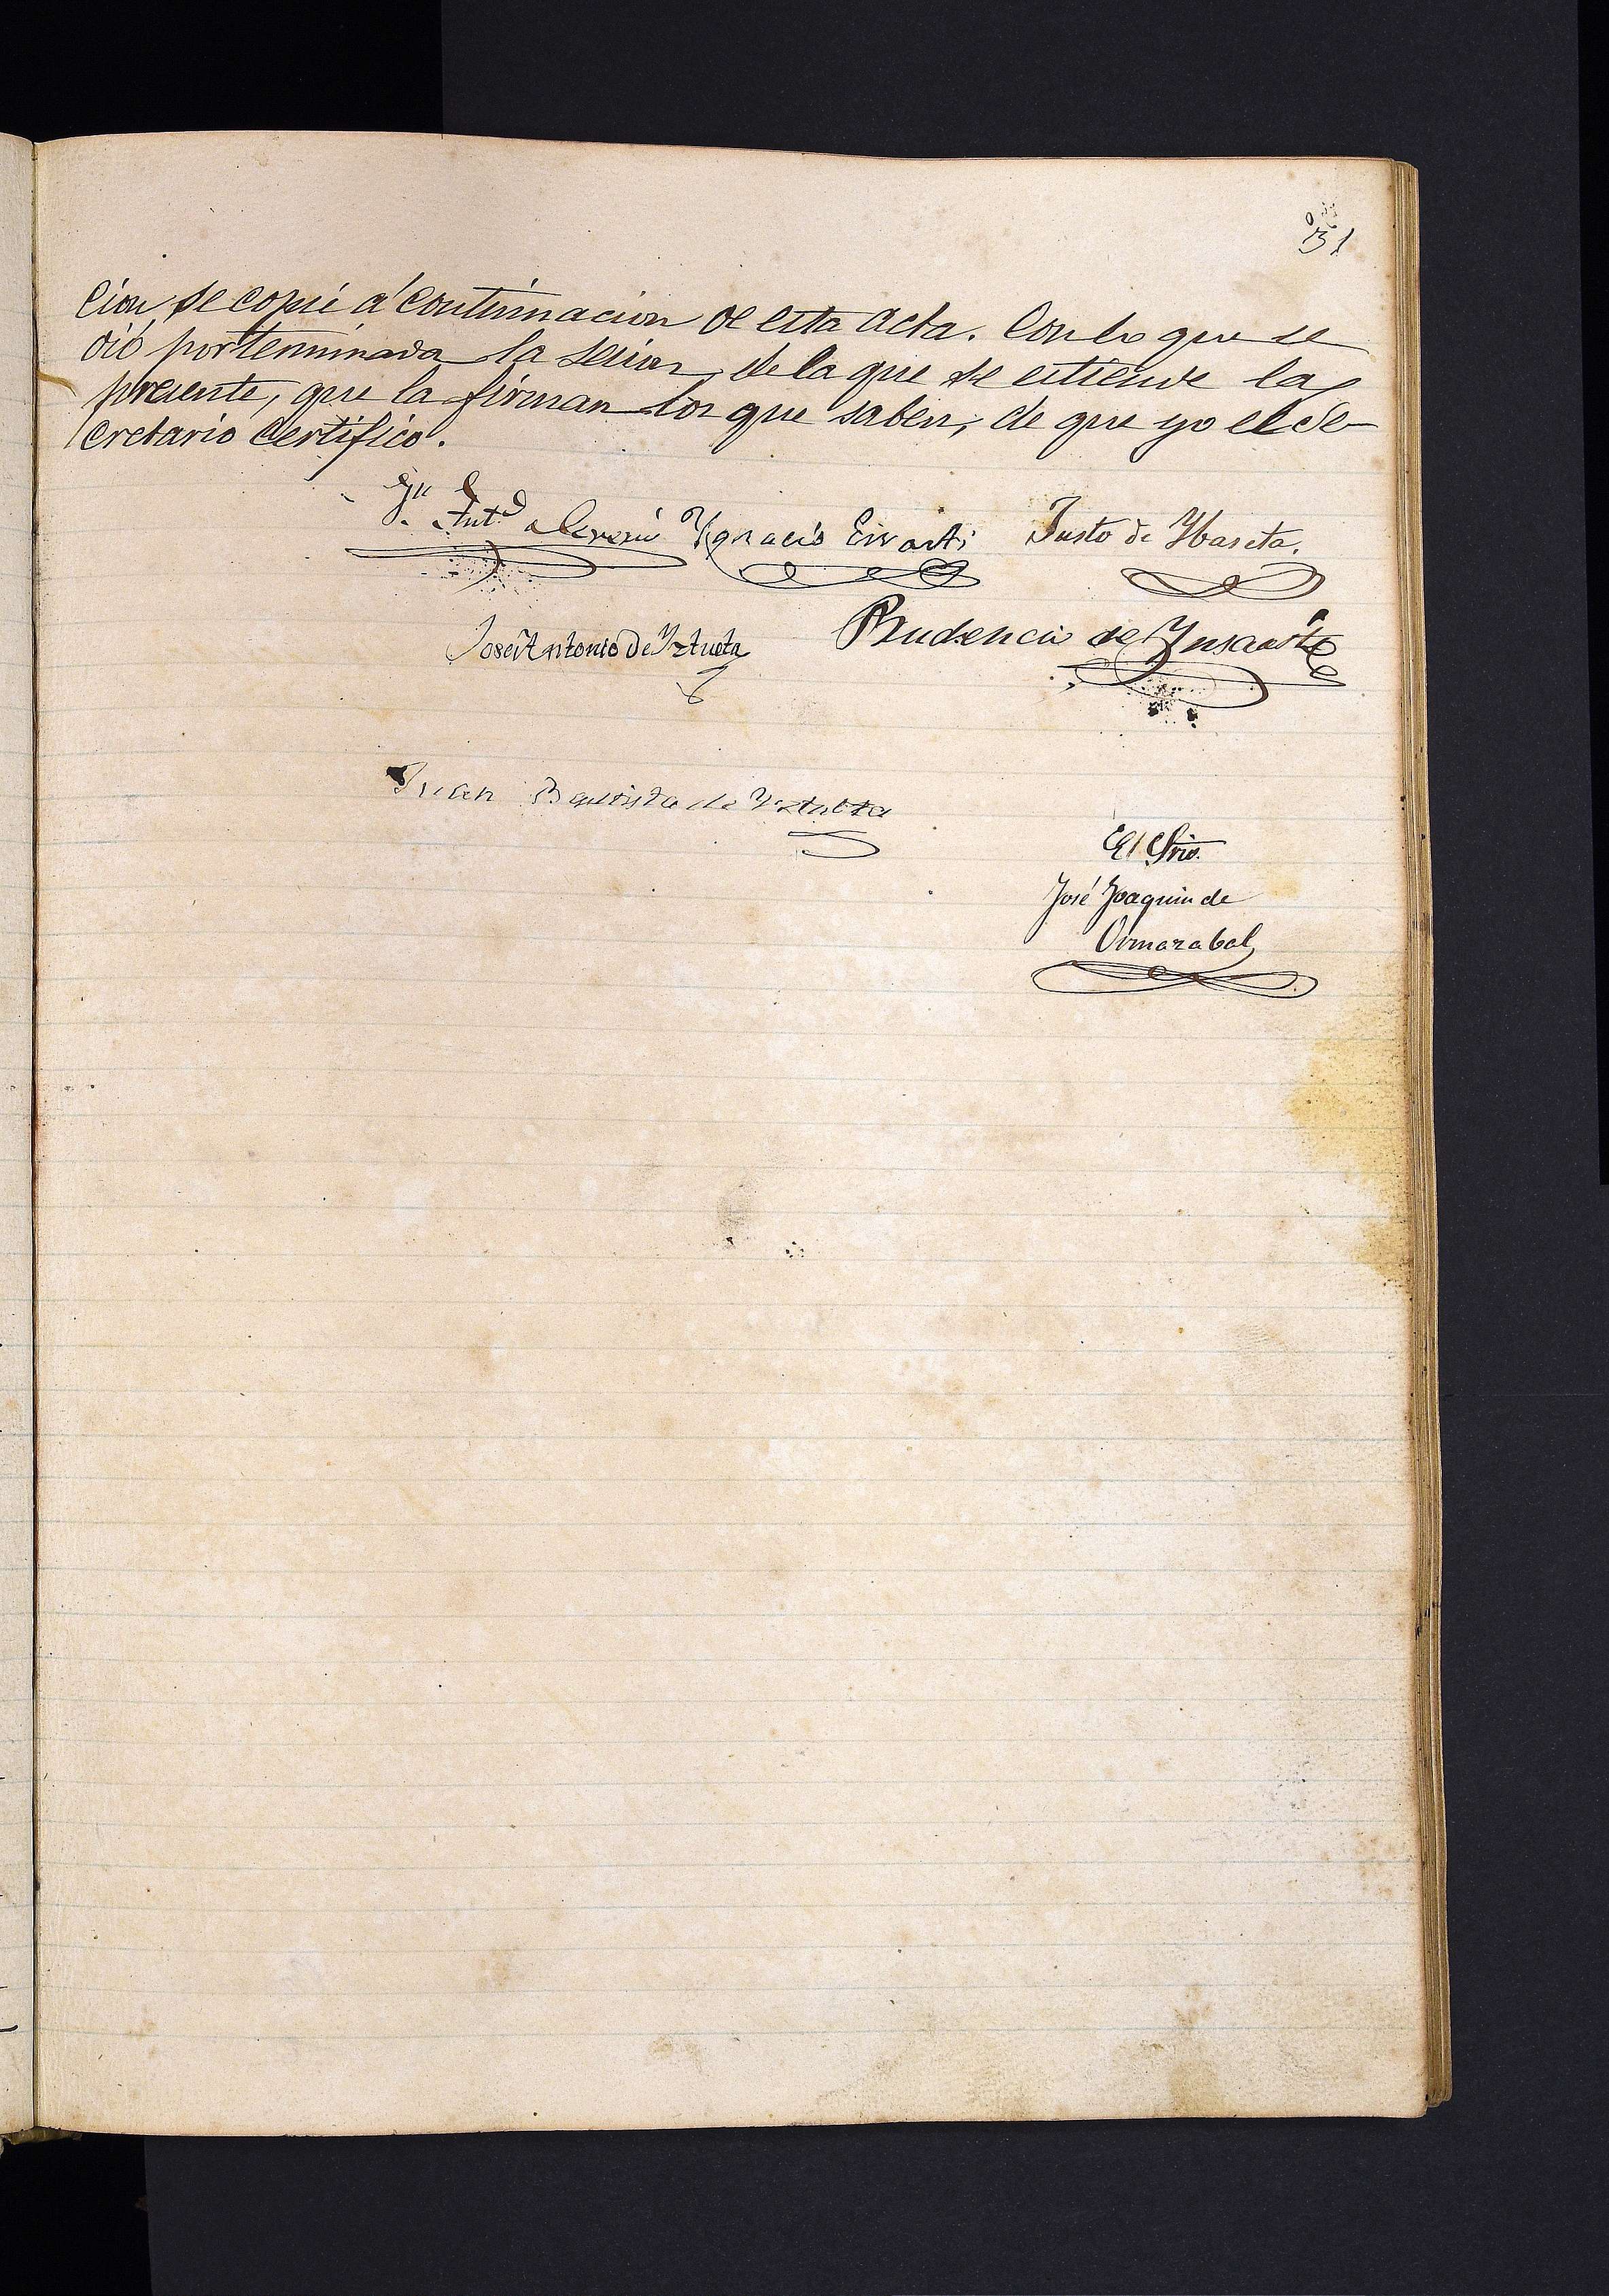 51
cion se copie á continuacion de esta acta. Con lo que se
dió por terminada la sesion, de la que se estiende la
presente, que la firman los que saben, de que yo el Se-
cretario Certifico.
Jn Anto Ygnacio Errasti Justo de Ybaseta.
José Antonio De Yztueta Prudencio de
Juan Bautista de Yztueta
El Srio.
José Joaquin de
Ormazabal